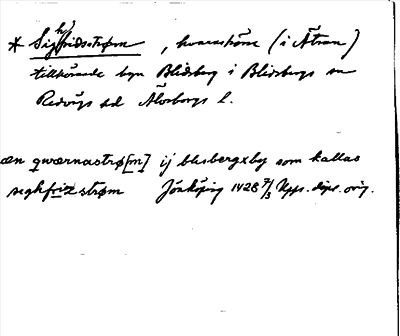 * Sig(h)fridsstrøm, kvarnström (i Ätran)
tillhörande byn Blidsberg i Blidsbergs sn
Redvägs hd Älvsborgs l.
æn qwærnastrø[m] ij blisbergxby som kallas
seghfrizstrøm Jönköping 1428 7/3 Upps. dipl. orig.